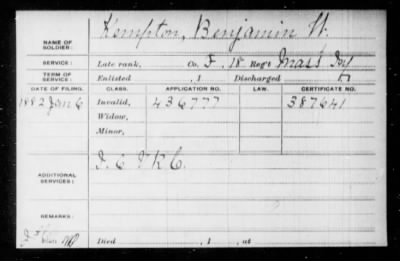 Kempton, Benjamin W.
NAME OF SOLDIER:
SERVICE: Late rank, Co. F, 18 Reg't Mass Inf
TERM OF SERVICE: Enlisted , 1 Discharged , 1
DATE OF FILING. CLASS. APPLICATION NO. LAW. CERTIFICATE NO.
1882 Jan 6 Invalid, 436777 387641
Widow,
Minor,
ADDITIONAL SERVICES: I. 6 V R C.
REMARKS:
Died , 1 , at